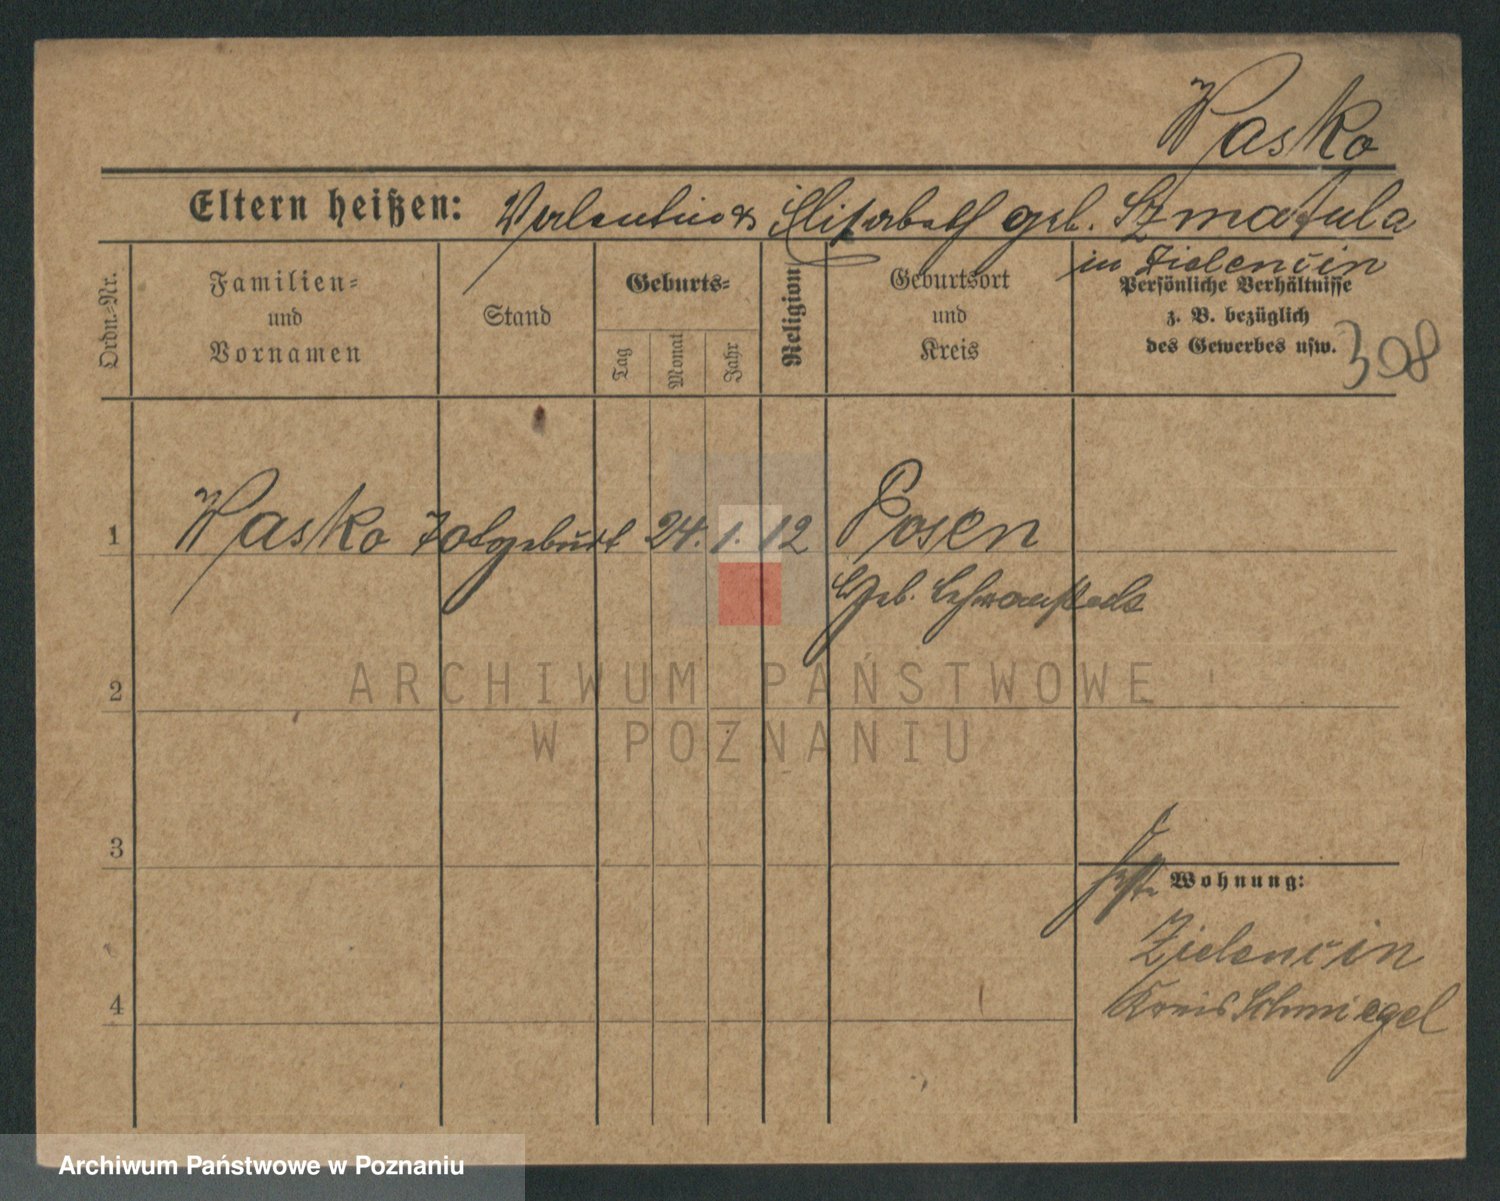 Wasko
Eltern heißen: Valentin & Elisabeth geb. Szmatula
in Zielencin
Ordn.-Nr.
Familien-
und
Vornamen
Stand
Geburts-
Tag
Monat
Jahr
Religion
Geburtsort
und
Kreis
Persönliche Verhältnisse
z. B. bezüglich
des Gewerbes usw.
308
1 Wasko Totgeburt 24. 1. 12 Posen
Geb.
ARCHIWUM PAŃSTWOWE
W POZNANIU
2
3
Wohnung:
Zielencin
Kreis Schmiegel
4
Archiwum Państwowe w Poznaniu